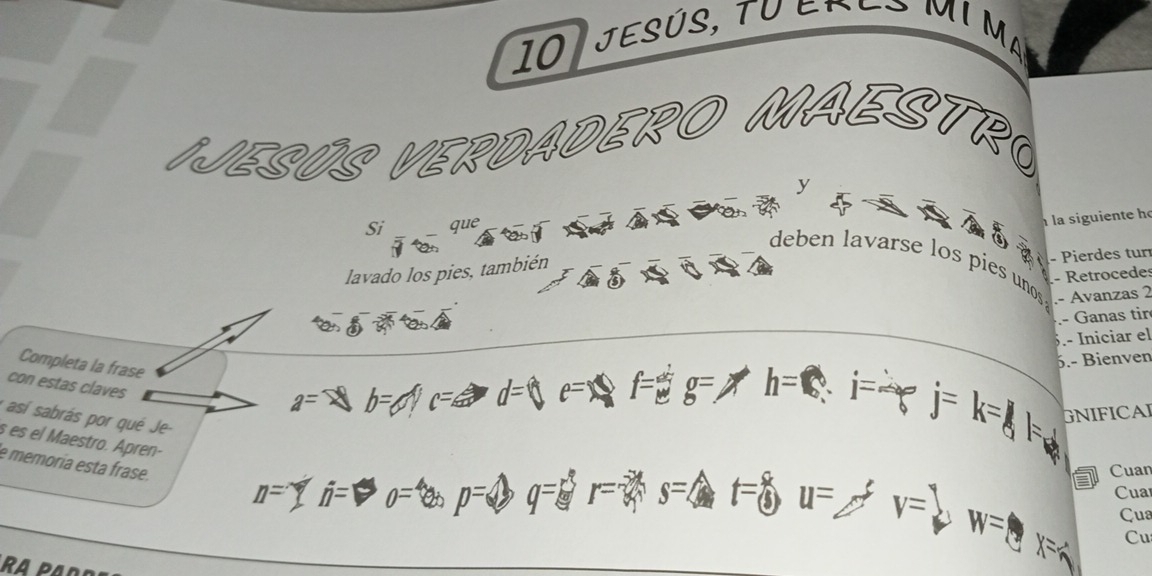 10 JESÚS, TÚ ERES MI MA
¡JESÚS VERDADERO MAESTRO
Si que y
lavado los pies, también deben lavarse los pies unos a
Completa la frase
con estas claves
así sabrás por qué Je-
s es el Maestro. Apren-
e memoria esta frase.
a= b= c= d= e= f= g= h= i= j= k= l=
n= ñ= o= p= q= r= s= t= u= v= w= x=
la siguiente ho
- Pierdes turn
- Retrocedes
.- Avanzas 2
.- Ganas tiro
5.- Iniciar el
6.- Bienven
GNIFICAD
Cuan
Cua
Cua
Cu